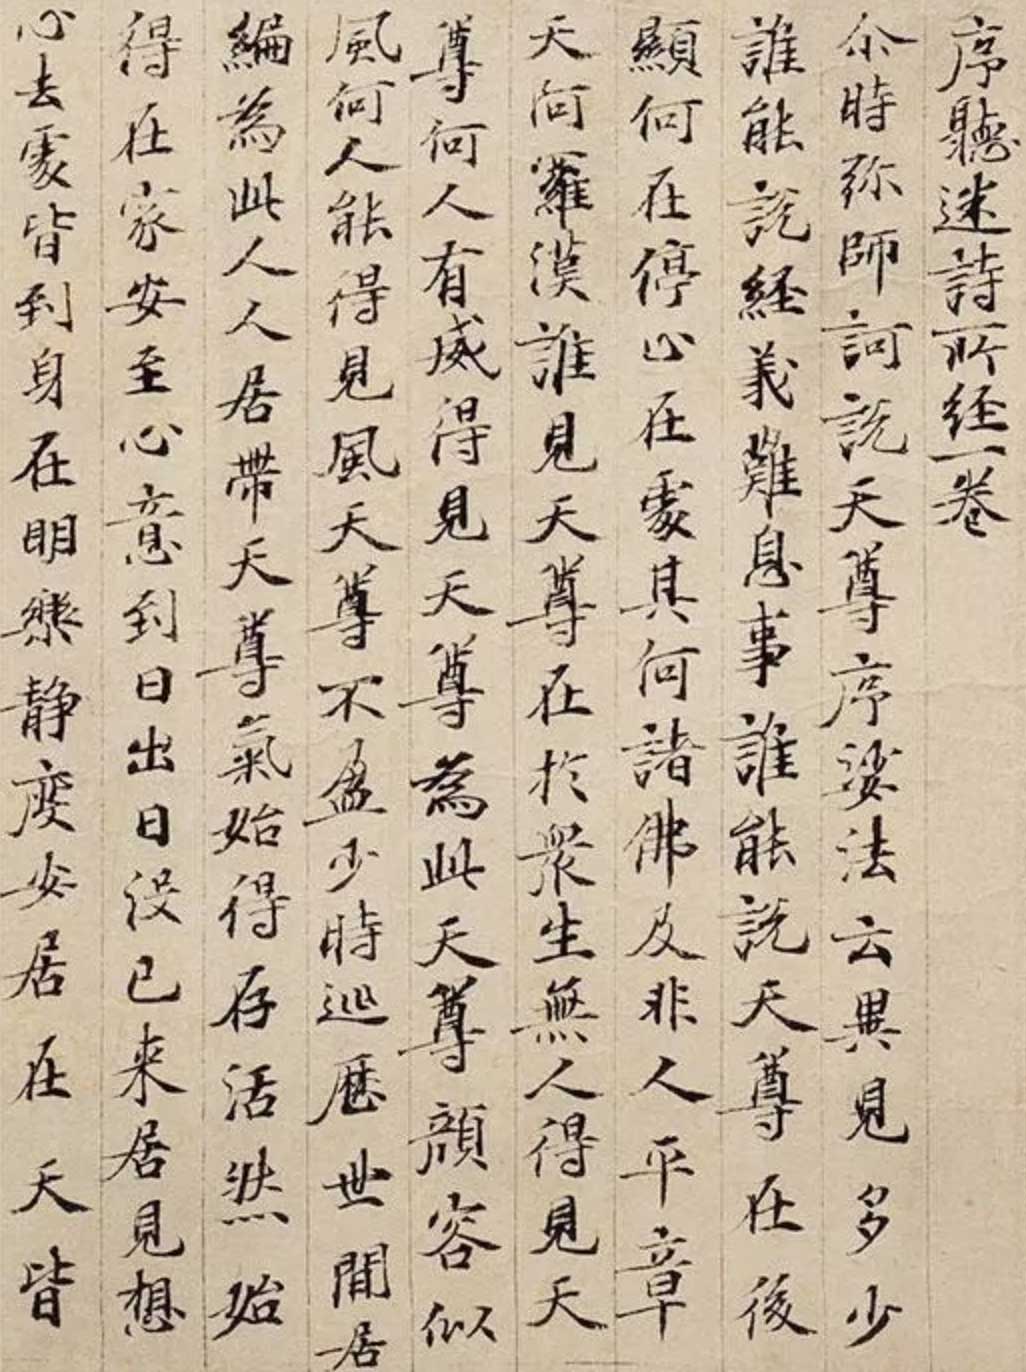 序聽迷詩所経一卷
尒時弥師訶説天尊序娑法云異見多少
誰能説経義難息事誰能説天尊在後
顯何在停止在處其何諸佛及非人平章
天阿羅漢誰見天尊在於衆生無人得見天
尊何人有威得見天尊為此天尊顔容似
風何人能得見風天尊不盈少時巡歷世間居
編為此人人居帶天尊氣始得存活然始
得在家安至心意到日出日没已来居見想
心去處皆到身在明樂静度安居在天皆